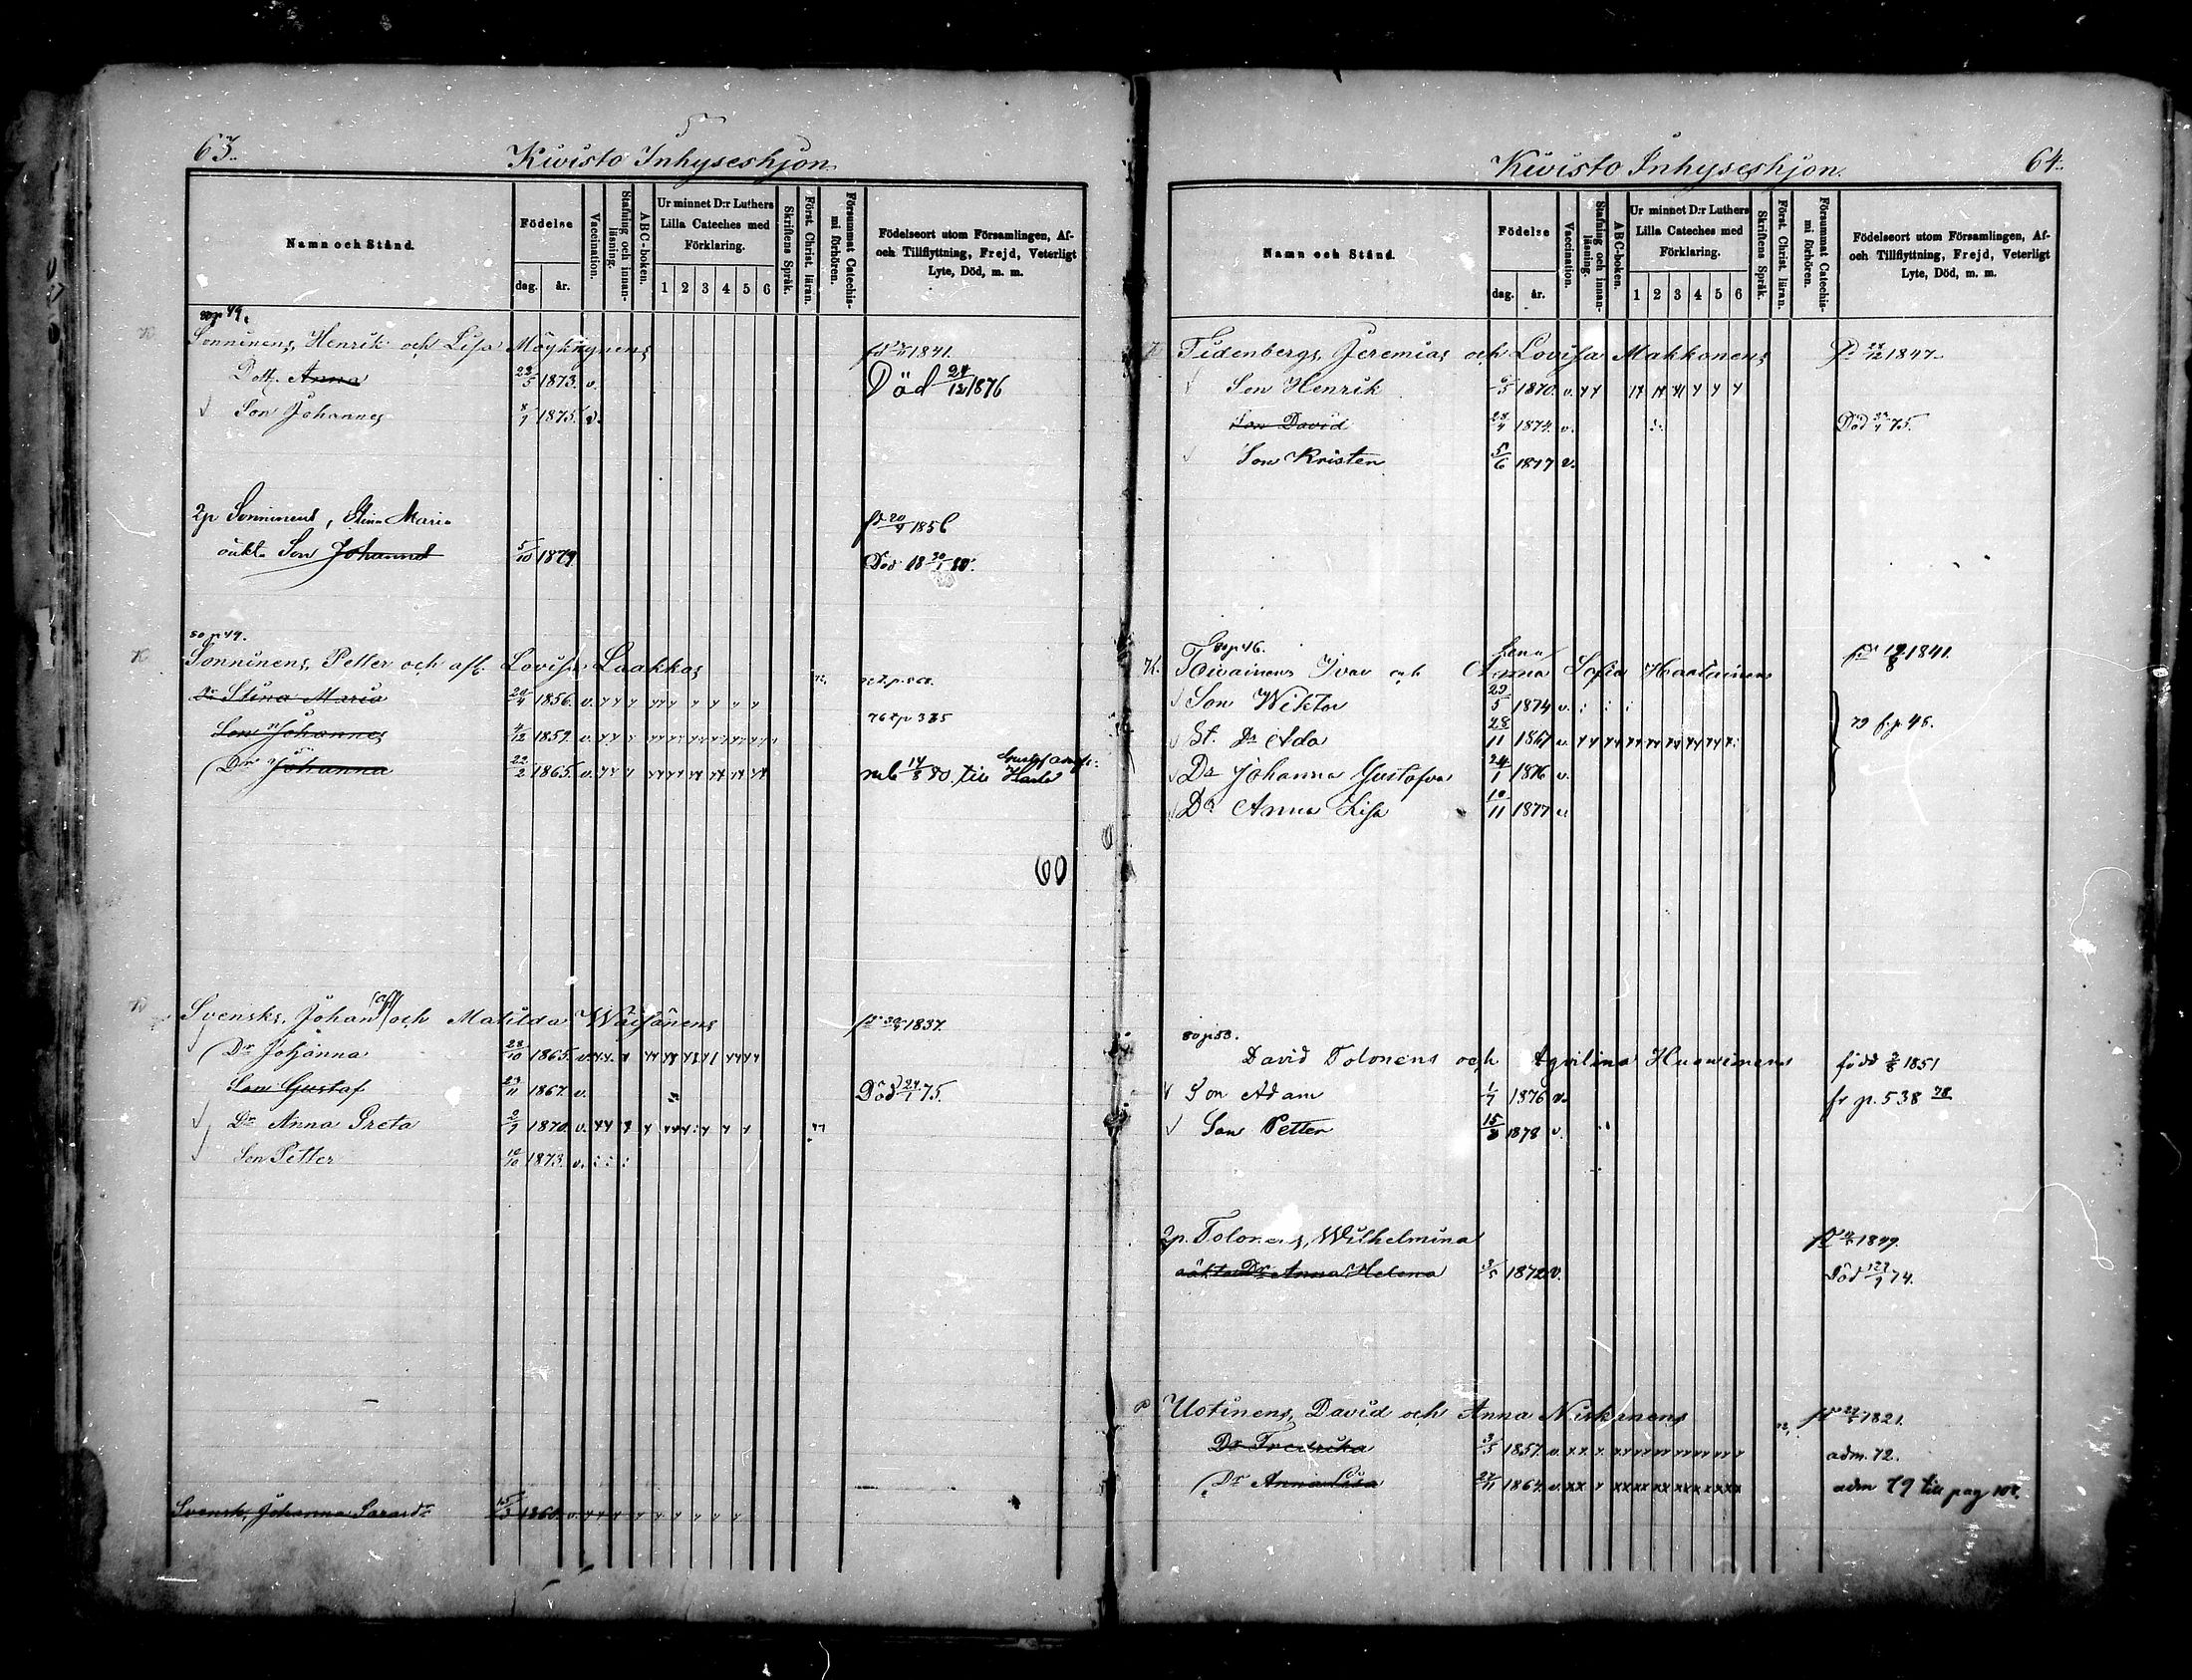 63.
Kivisto Inhyseshjon.
Namn och Stånd.
Födelse
dag. år.
Vaccination.
Stafning och innanläsning.
ABC-boken.
Ur minnet D:r Luthers Lilla Cateches med Förklaring.
1 2 3 4 5 6
Skriftens Språk.
Först. Christ. läran.
Försummat Catechismi förhören.
Födelseort utom Församlingen, Af- och Tillflyttning, Frejd, Veterligt Lyte, Död, m. m.
80 p 49.
Sonninens, Henrik och Lisa Möykkynens 1841.
Dottr. Anna 23/5 1873. v. Död 24/12 1876
Son Johannes 8/7 1875. v.
2p Sonninens, Stina Maria fd 20/4 1856
oäkt. Son Johannes 5/10 1879 Död 18 30/1 80.
80 p 49.
Sonninens, Petter och afl. Lovisa Laakkos
Dr Stina Maria 20/4 1856. v.
Son Johannes 4/12 1859. v. 76 p 385
Dr Johanna 22/2 1865. v. 14/3 80. till
60
Svensks, Johan och Matilda Wäisänens 1837.
Dr Johanna 28/10 1865. v.
Son Gustaf 29/11 1867. v. Död 24/1 75.
Dr Anna Greta 2/9 1870. v.
Son Petter 10/10 1873. v.
Svensk, Johanna Sarasdr 1860. v.
64.
Kivisto Inhyseshjon.
Namn och Stånd.
Födelse
dag. år.
Vaccination.
Stafning och innanläsning.
ABC-boken.
Ur minnet D:r Luthers Lilla Cateches med Förklaring.
1 2 3 4 5 6
Skriftens Språk.
Först. Christ. läran.
Försummat Catechismi förhören.
Födelseort utom Församlingen, Af- och Tillflyttning, Frejd, Veterligt Lyte, Död, m. m.
Tidenbergs, Jeremias och Lovisa Makkonens 1847.
Son Henrik 1870. v.
Son David 1874. v. Död 75.
Son Kristen 5/6 1877 v.
80 p 46.
Toivainens Ivar och Anna Sofia 1841.
Son Wiktor 29/5 1874 v.
St. Dr Ada 28/11 1867 v. 79 f. p. 46.
Dr Johanna Gustafva 24/1 1876 v.
Dr Anna Lisa 10/11 1877 v.
80 p 53.
David Tolonens och Agvilina född 1851
Son Adam 1/7 1876 v. fr p. 538 78
Son Petter 15/8 1878 v.
2p. Tolonens, Wilhelmina 1849.
oäkta Dr Anna Helena 3/5 1872 v. Död 74.
Uotinens, David och Anna Niskanens 1821.
Dr Fredrika 3/5 1857. v. adm. 72.
Dr Anna Lisa 27/11 1864. v. adm 79 till pag 108.